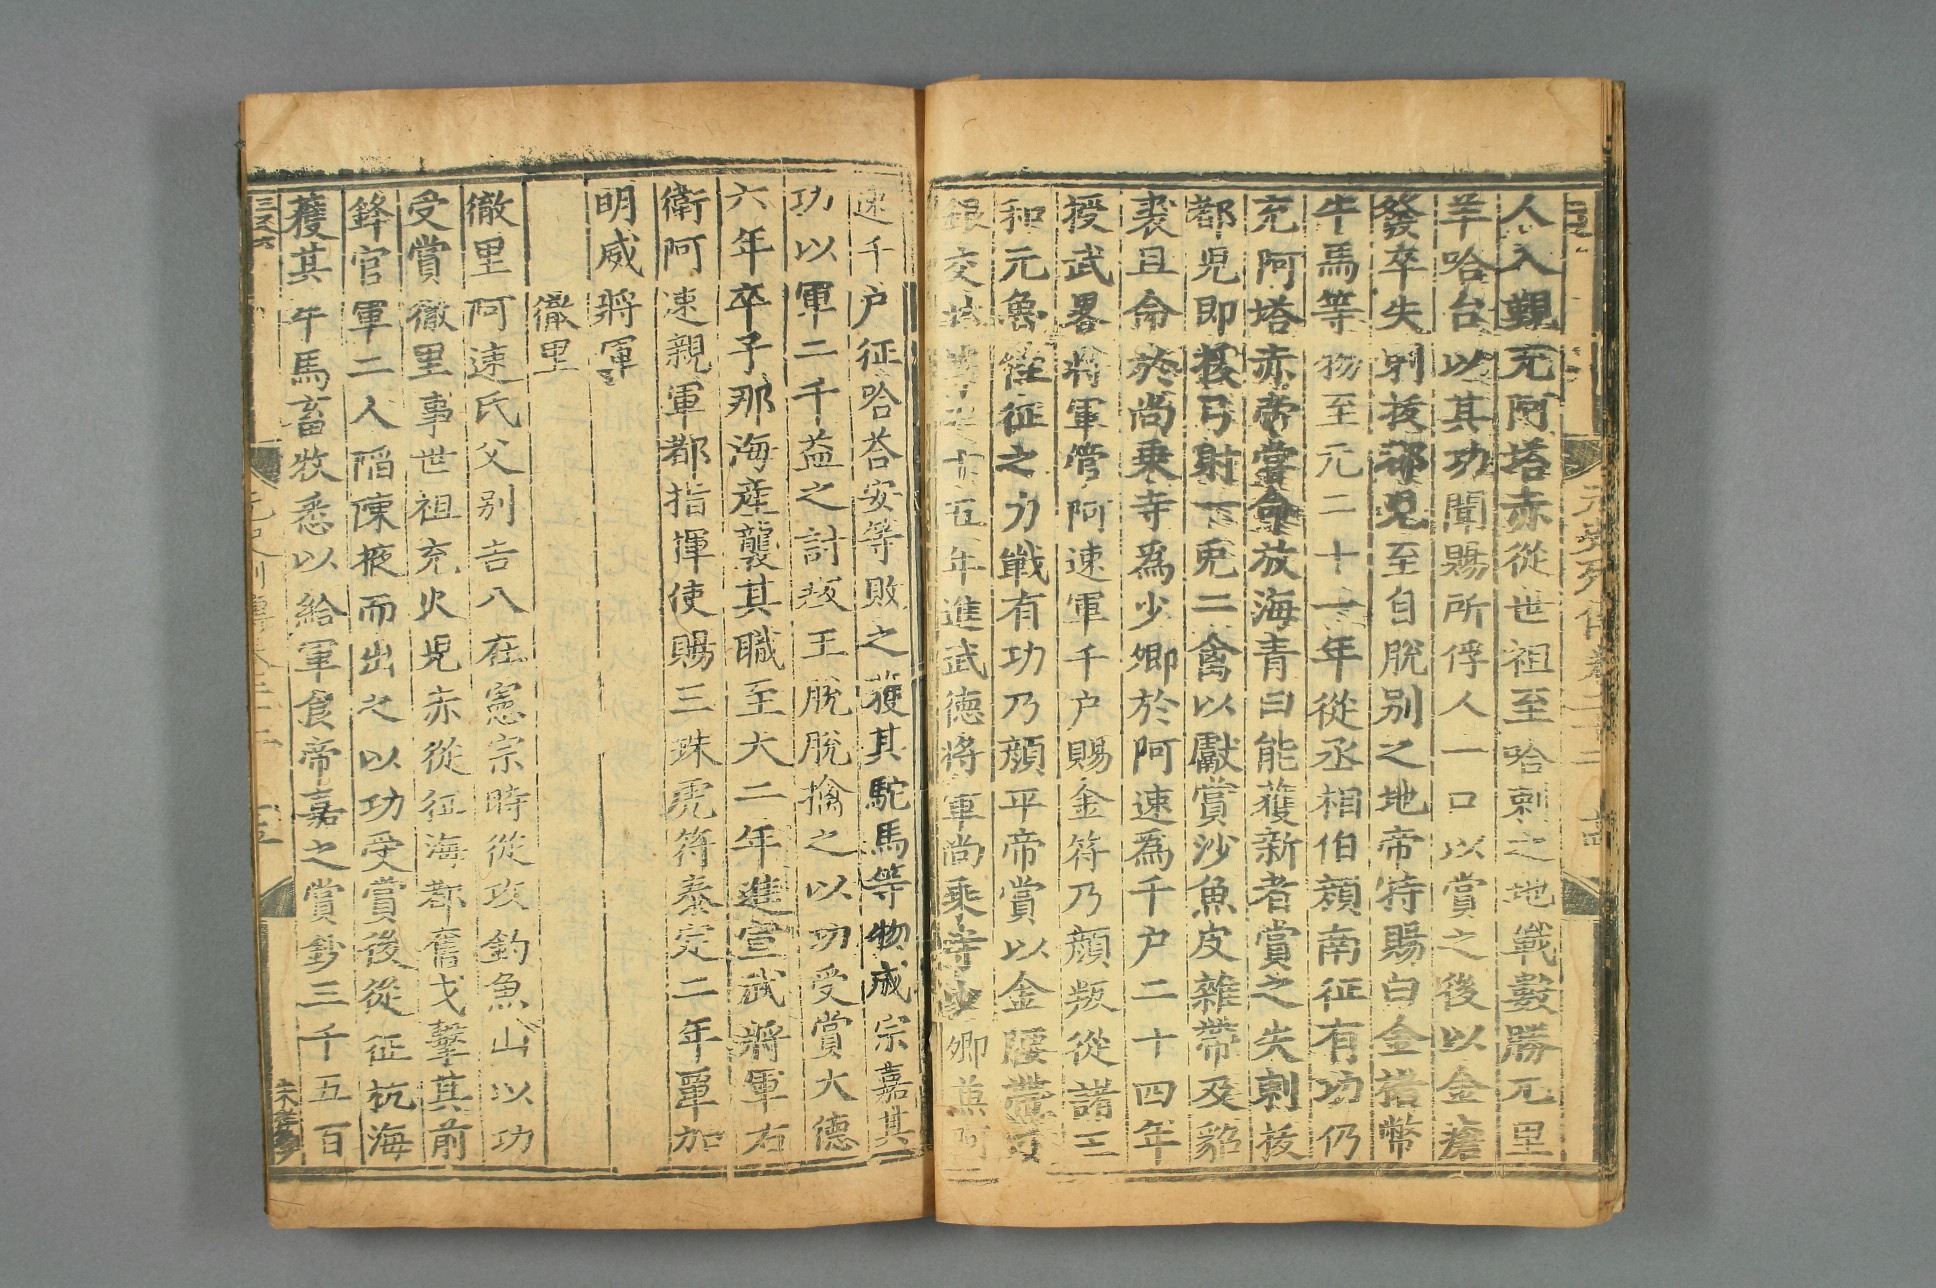 人入覲充阿塔赤從世祖至哈剌之地戰數勝元里
羊哈台以其功聞賜所俘人一口以賞之後以金瘡
發卒失剌拔都兒至自脫別之地帝特賜白金楮幣
牛馬等物至元二十一年從丞相伯顏南征有功仍
充阿塔赤帝嘗命放海青曰能獲新者賞之失剌拔
都兒即援弓射一兎二禽以獻賞沙魚皮雜帶及貂
裘且命於尚乗寺爲少卿於阿速爲千户二十四年
授武畧將軍管阿速軍千户賜金符乃顏叛從諸王
和元魯往征之力戰有功乃顏平帝賞以金腰帶
年進武德將軍尚乘寺少卿兼阿
速千户征哈荅安等敗之獲其駝馬等物成宗嘉其
功以軍二千益之討叛王脫脫擒之以功受賞大德
六年卒子那海産襲其職至大二年進宣武將軍右
衛阿速親軍都指揮使賜三珠虎符泰定二年軍加
明威將軍
徹里
徹里阿速氏父别吉八在憲宗時從攻釣魚山以功
受賞徹里事世祖充火兒赤從征海都奮戈擊其前
鋒官軍二人陷陳掖而出之以功受賞後從征杭海
獲其牛馬畜牧悉以給軍食帝嘉之賞鈔三千五百